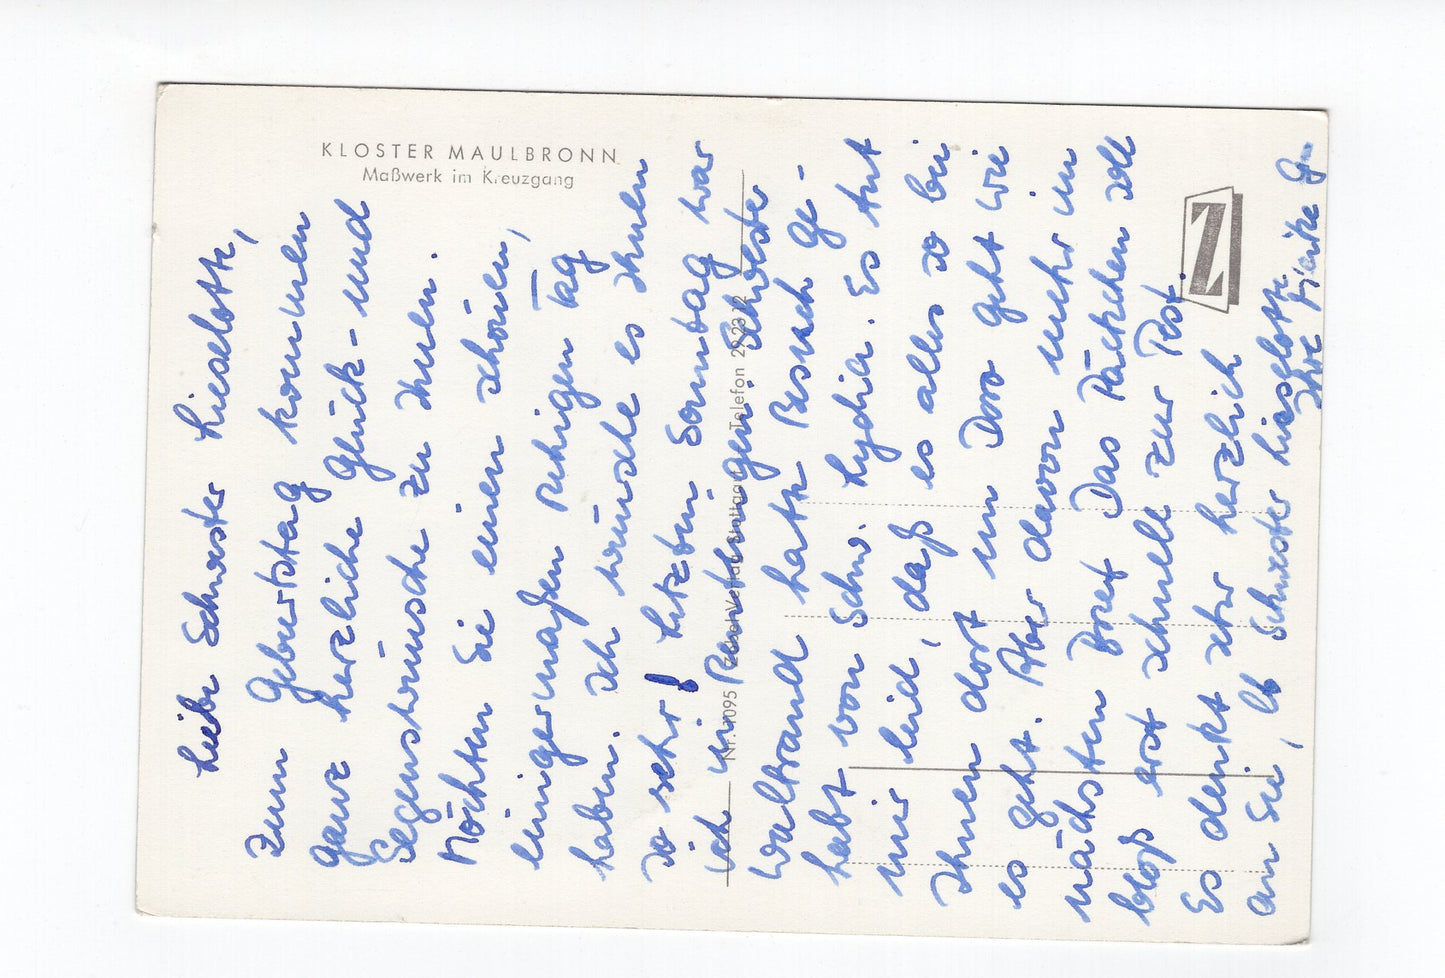 KLOSTER MAULBRONN
Maßwerk im Kreuzgang
Liebe Schwester Lieselotte,
Zum Geburtstag kommen
ganz herzliche Glück- und
Segenswünsche zu Ihnen.
Möchten Sie einen schönen,
einigermaßen ruhigen Tag
haben. Ich wünsche es Ihnen
so sehr! Letzten Sonntag war
ich in Schwester
Waltraud hatte Besuch ge-
habt von Schw. Lydia. Es tut
mir leid, daß es alles so bei
Ihnen dort um Dora geht wie
es geht. Aber davon mehr im
nächsten Brief. Das Päckchen soll
bloß erst schnell zur Post.
Es denkt sehr herzlich
an Sie, lb Schwester Lieselotte
Ihre
Nr. 1095 Verlag Stuttgart Telefon 292312
Z